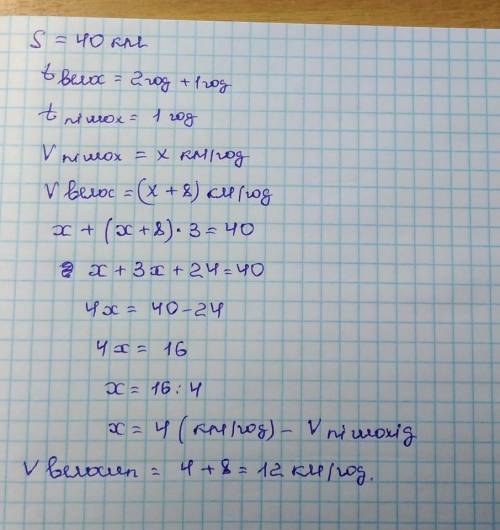 S = 40 км
t велос = 2 год + 1 год
t пішох = 1 год
V пішох = x км/год
V велос = (x + 8) км/год
x + (x + 8) · 3 = 40
x + 3x + 24 = 40
4x = 40 - 24
4x = 16
x = 16 : 4
x = 4 (км/год) - V пішохід
V велосип = 4 + 8 = 12 км/год.